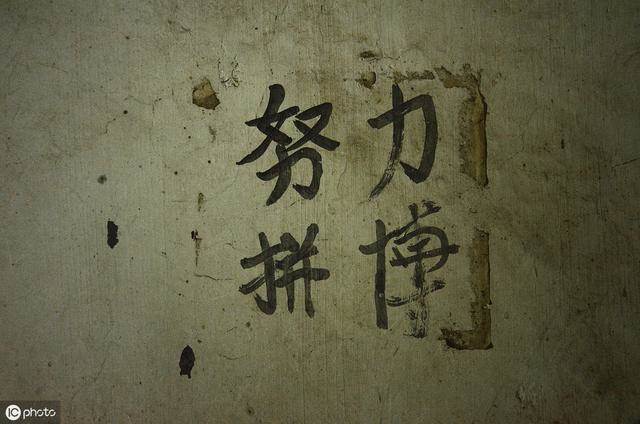 努力
拼博
iC photo